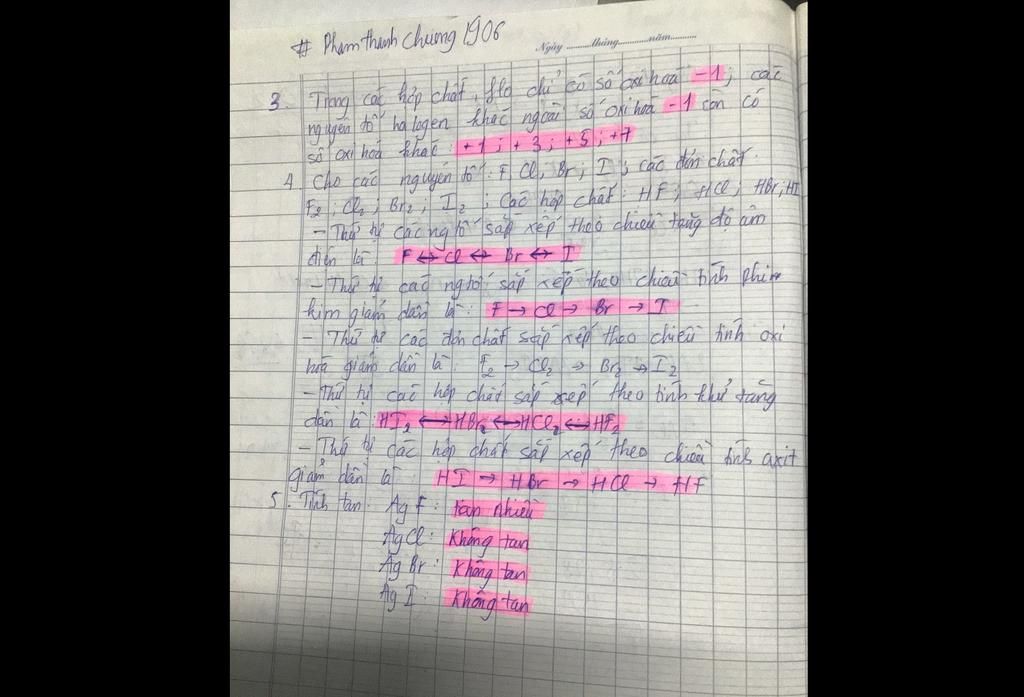 # Phạm thành Chung 1906
Ngày ........tháng.........năm........
3. Trong các hợp chất, flo chỉ có số oxi hoá -1; các
nguyên tố halogen khác ngoài số oxi hoá -1 còn có
số oxi hoá khác: +1; +3; +5; +7
4. Cho các nguyên tố: F, Cl, Br, I; các đơn chất:
F2; Cl2; Br2; I2; Các hợp chất: HF; HCl; HBr; HI
- Thứ tự các ngtố sắp xếp theo chiều tăng độ âm
điện là F ↔ Cl ↔ Br ↔ I
- Thứ tự các ngtố sắp xếp theo chiều tính phi
kim giảm dần là: F → Cl → Br → I
- Thứ tự các đơn chất sắp xếp theo chiều tính oxi
hoá giảm dần là: F2 → Cl2 → Br2 → I2
- Thứ tự các hợp chất sắp xếp theo tính khử tăng
dần là HI2 ↔ HBr2 ↔ HCl2 ↔ HF2
- Thứ tự các hợp chất sắp xếp theo chiều tính axit
giảm dần là: HI → HBr → HCl → HF
5. Tính tan: AgF: tan nhiều
AgCl: Không tan
AgBr: Không tan
AgI: Không tan